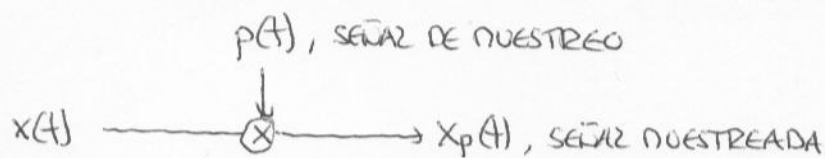 p(t), SEÑAL DE MUESTREO
x(t) X xp(t), SEÑAL MUESTREADA